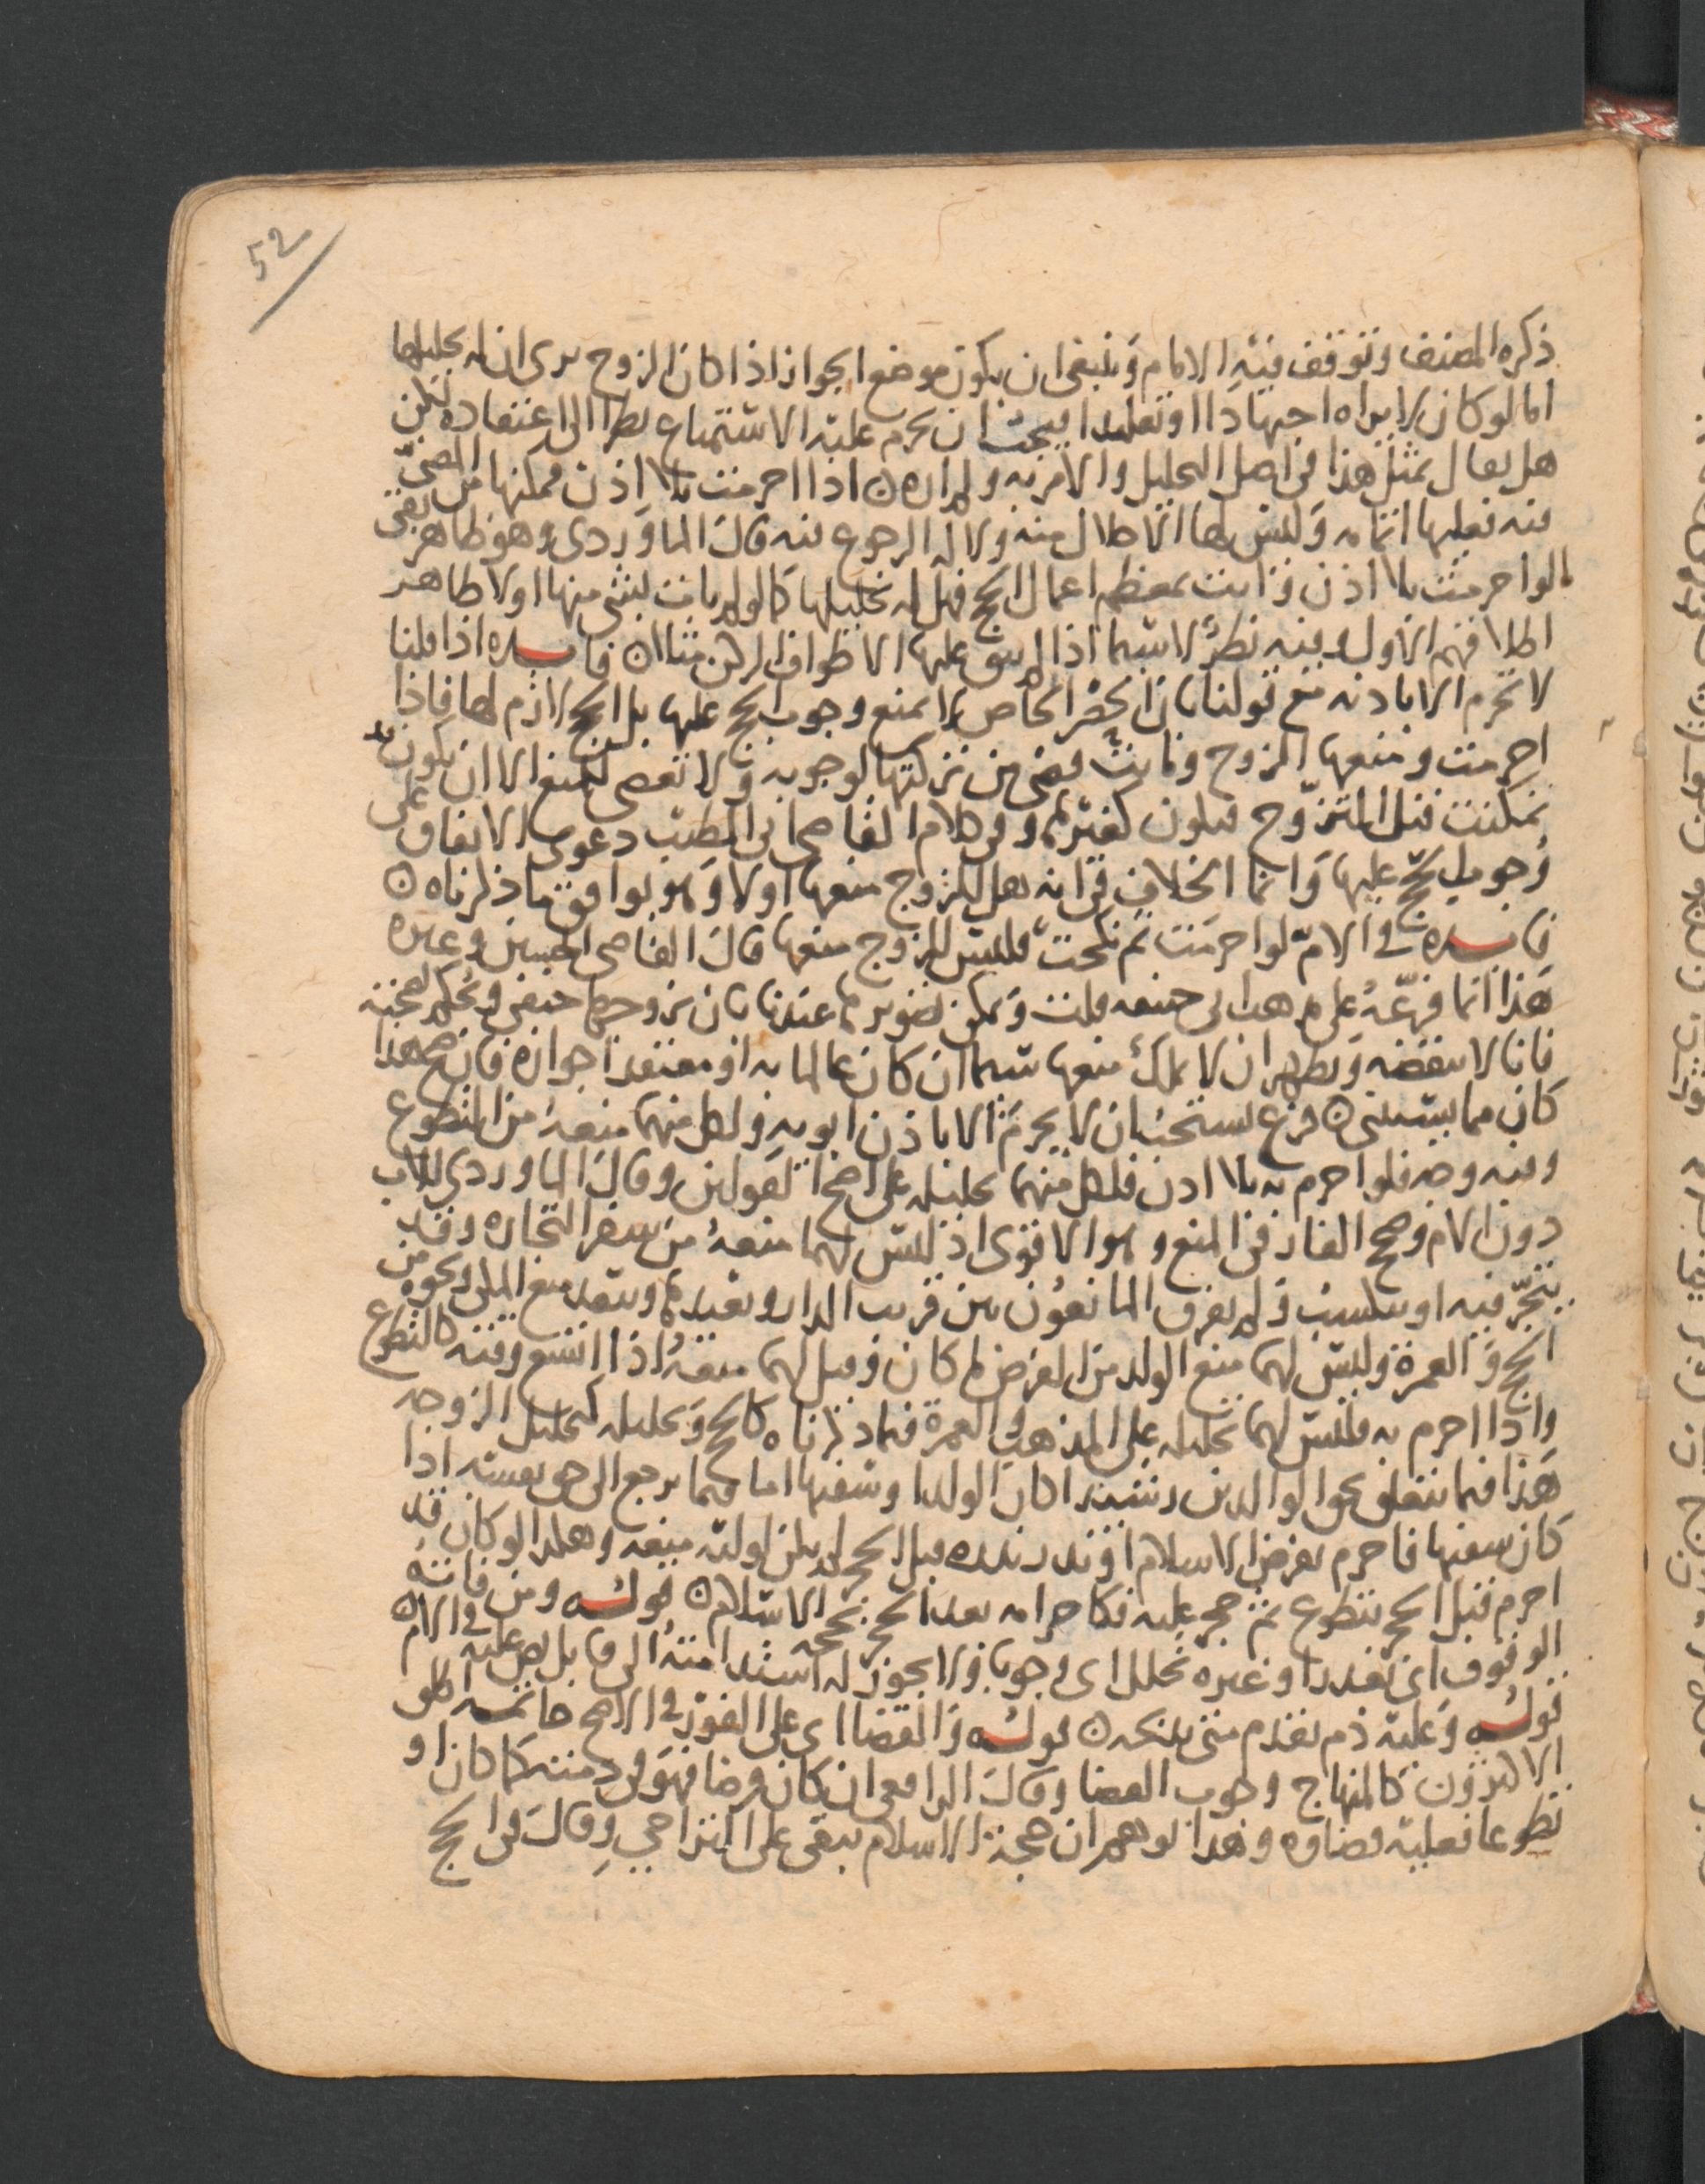 52
ذكره المصنف وتوقف فيه الامام وينبغي ان يكون موضع الجواز اذا كان الزوج يرى ان له تحليلها
اما لو كان لا يراه اجتهادا او تقليدا فيجب ان يحرم عليه الاستمتاع نظرا الى اعتقاده لكن
هل يقال بمثل هذا في اصل التحليل والامر به ولم اره ن اذا احرمت بلا اذن فمكنها من المضي
فيه فعليها اتمامه وليس لها الاحلال منه ولا له الرجوع فيه قال الماوردي وهو ظاهر بقي
ما لو احرمت بلا اذن واتت بمعظم اعمال الحج فهل له تحليلها كما لو لم يات بشي منها اولا ظاهر
اطلاقهم الاول وفيه نظر لا سيما اذا لم يبق عليها الا طواف الركن مثلا ن فايده اذا قلنا
لا تحرم الا باذنه مع قولنا بان الحصر الخاص لا يمنع وجوب الحج عليها بل الحج لازم لها فاذا
احرمت ومنعها الزوج وماتت قضي من تركتها لوجوبه ولا تعصي للمنع الا ان تكون قد
تمكنت قبل التزوج فيكون كغيرها وفي كلام القاضي ابي الطيب دعوى الاتفاق على
وجوب الحج عليها وانما الخلاف في انه هل للزوج منعها اولا وهو يوافق ما ذكرناه ن
فايده في الام لو احرمت ثم نكحت فليس للزوج منعها قال القاضي الحسين وغيره
هذا انما فرعه على مذهب ابي حنيفه قلت ويمكن تصويرها عندنا بان يزوجها حنفي ويحكم بصحته
فانا لا ننقضه ويظهر ان لا يملك منعها سيما ان كان عالما به او معتقدا جوازه فان صح هذا
كان مما يستثنى ن فرع يستحب ان لا يحرم الا باذن ابويه ولكل منهما منعه من التطوع
وفيه وجه فلو احرم به بلا اذن فلكل منهما تحليله على اصح القولين وقال الماوردي للاب
دون الام وصحح الفارقي المنع وهو الاقوى اذ ليس لهما منعه من سفر التجاره وقد
يتجر فيه او يكتسب ولم يفرق المانعون بين قريب الدار وبعيدها ويبعد منع المكي ونحوه من
الحج والعمرة وليس لهما منع الولد من الفرض كما كان وقيل لهما منعه اذا اتسع وقته كالتطوع
واذا احرم به فليس لهما تحليله على المذهب والعمرة فيما ذكرناه كالحج وتحليله كتحليل الزوجه
هذا فيما يتعلق بحق الوالدين رشيدا كان الولد او سفيها اما فيما يرجع الى حق نفسه اذا
كان سفيها فاحرم بفرض الاسلام او نذر نذره قبل الحجر لم يكن لوليه منعه وهكذا لو كان قد
احرم قبل الحجر بتطوع ثم حجر عليه فكاحرامه بعد الحجر بحجه الاسلام ن قوله ومن فاته
الوقوف اي بعذر او غيره تحلل اي وجوبا ولا يجوز له استدامته الى قابل نص عليه في الام ن
قوله وعليه دم تقدم متى يلزمه ن قوله والقضا اي على الفور في الاصح خاتمه اطلق
الاكثرون كالمنهاج وجوب القضا وقال الرافعي ان كان فرضا فهو في ذمته كما كان او
تطوعا فعليه قضاوه وهذا يوهم ان حجة الاسلام تبقى على التراخي وقال في الحج